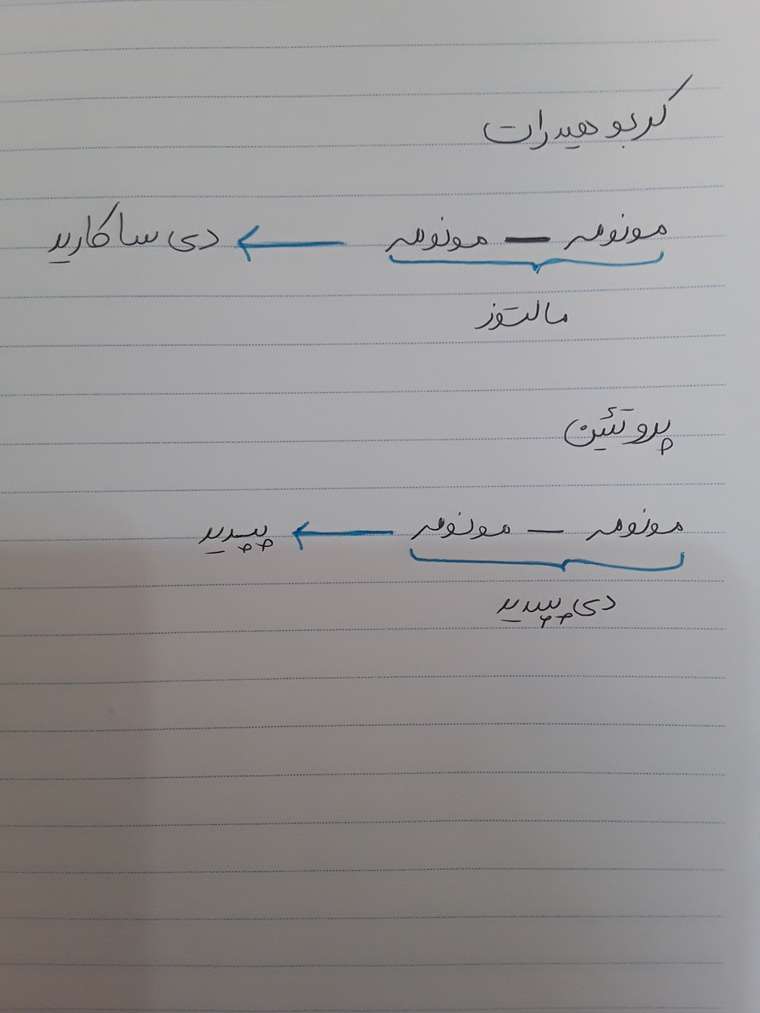 کربوهیدرات
مونومر — مونومر ← دی ساکارید
مالتوز
پروتئین
مونومر — مونومر ← پپتید
دی پپتید